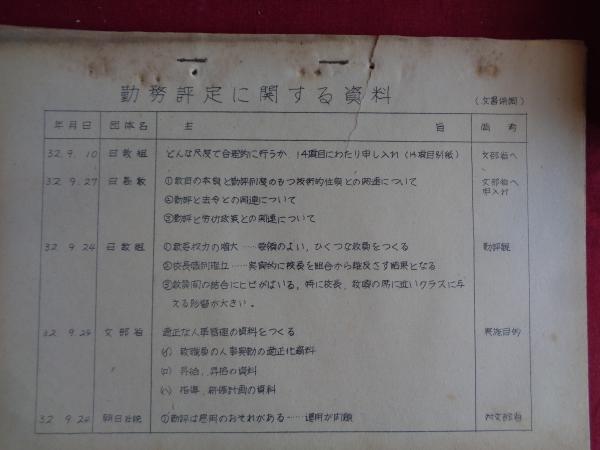 勤務評定に関する資料
(文書係調)
年月日 団体名 主 旨 備考
32. 9. 10 日教組 どんな尺度で合理的に行うか、14項目にわたり申し入れ(14項目別紙) 文部省へ
32. 9. 27 日高教 ①教育の本質と勤評制度のもつ技術的性質との関連について 文部省へ
申入れ
②勤評と法令との関連について
③勤評と労仂政策との関連について
32. 9. 24 日教組 ①教委权力の増大……要領のよい、ひくつな教員をつくる 勤評観
②校長権利確立……実質的に校長を組合から離反さす結果となる
③教員間の結合にヒビがはいる。特に校長、教頭の席に近いクラスに与
える影響が大きい。
32 9. 29 文部省 適正な人事管理の資料をつくる 実施目的
(イ) 教職員の人事異動の適正化資料
〃 (ロ) 昇給、昇格の資料
(ハ) 指導、研修計画の資料
32 9. 20 朝日社説 ①勤評は悪用のおそれがある……運用が問題 対文部省